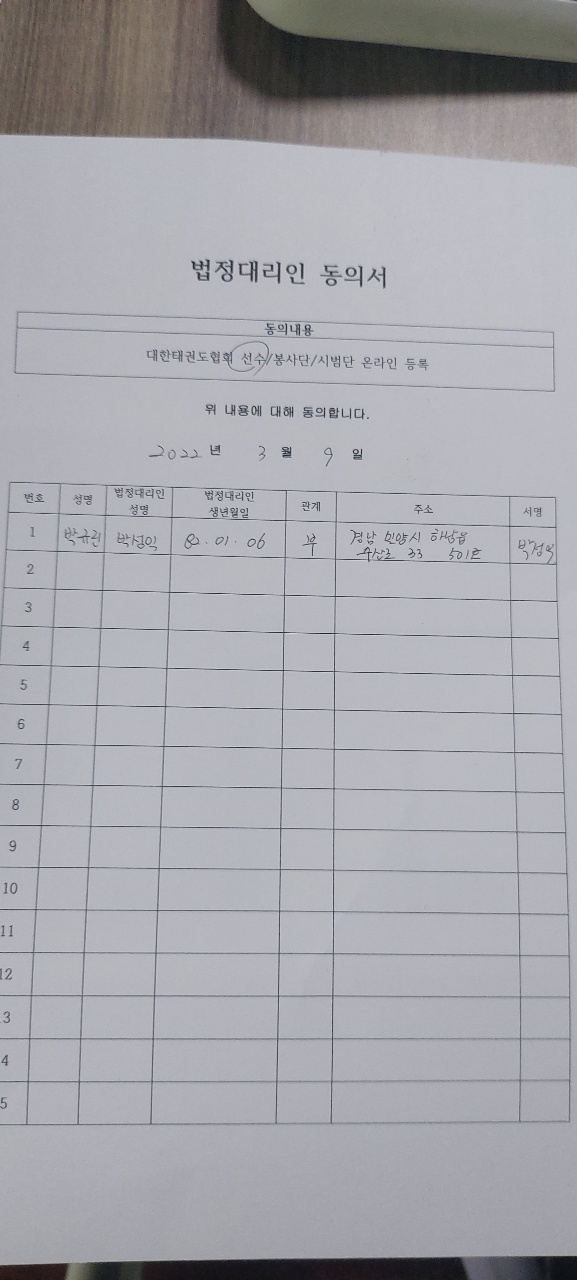 법정대리인 동의서
동의내용
대한태권도협회 선수/봉사단/시범단 온라인 등록
위 내용에 대해 동의합니다.
2022 년 3 월 9 일
번호 성명 법정대리인 성명 법정대리인 생년월일 관계 주소 서명
1 박규린 박성익 82.01.06 부 경남 밀양시 하남읍
수산로 33 501호
2
3
4
5
6
7
8
9
10
11
12
3
4
5